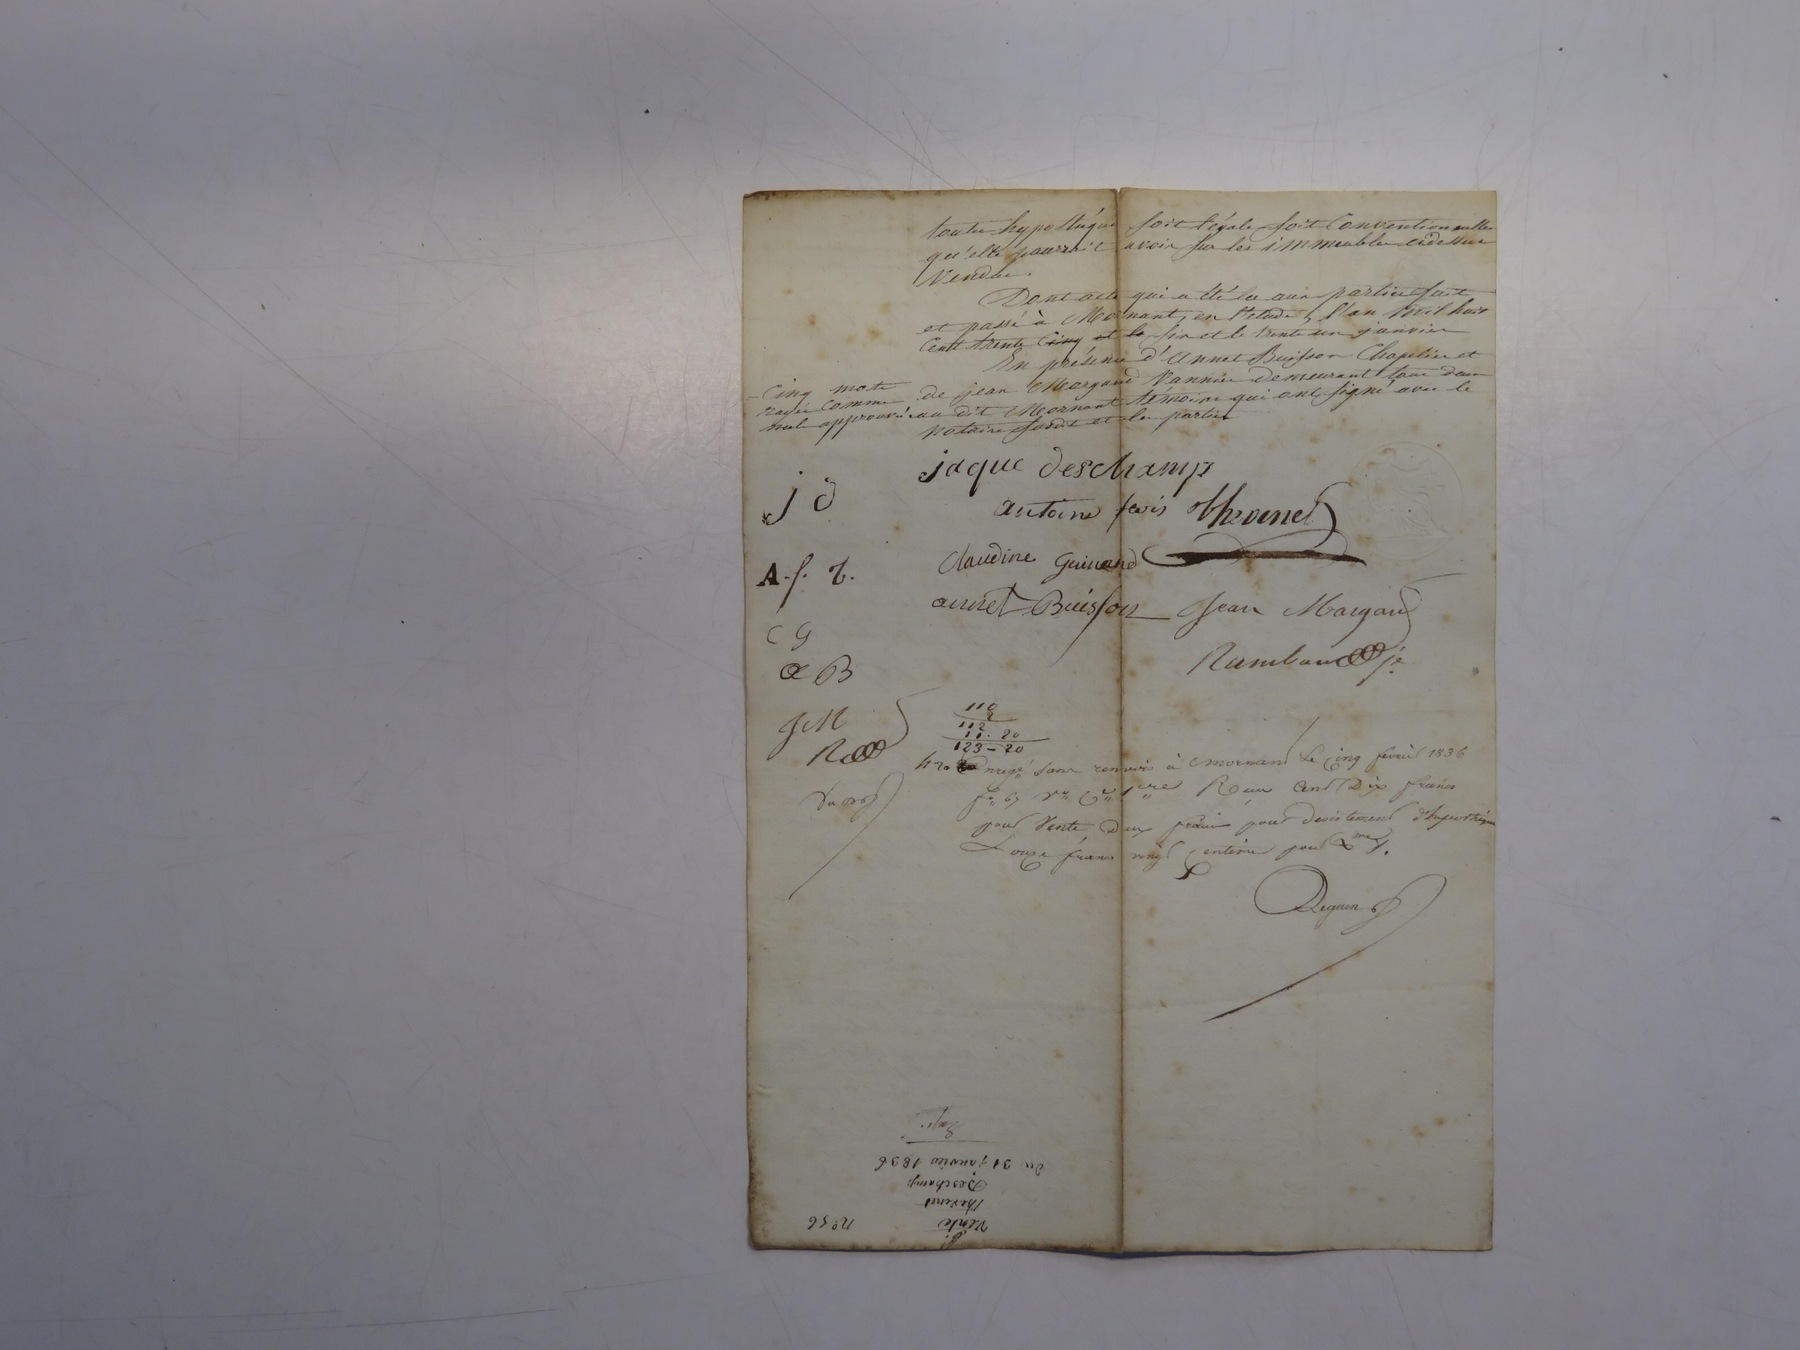 toutes hypothéques soit légale soit Conventionnelles
qu'elle pourrait avoir sur les immeubles cidessus
Vendus.
Dont acte qui a été lu aux parties fait
et passé à Mornant, en l'etude, l'an mil huit
Cent trente Cinq et le six et le trente un janvier
En présence d'annet Buisson Chapelier et
de jean Margand Vannier demeurant tous deux
au dit Mornant témoins qui ont signé avec le
notaire susdit et les parties
Cinq mots
rayés comme
nuls approuvé
jaque deschamps
j d
antoine thevenet
Claudine Guinand
A. f. t.
annet Buisson Jean Margand
C G
Rambaud je
a B
J M
R
110
2
112
11. 20
123 - 20
Enregé sans renvois à Mornant le Cinq fevrier 1836
fo 67 Ro Ce 1ere Reçu Cent Dix francs
pour Vente, Deux francs pour desistement d'hypothéque
onze francs vingt Centimes pour Xme.
Deguen
nº 56
Vente
thevenet
Deschamps
du 31 janvier 1836